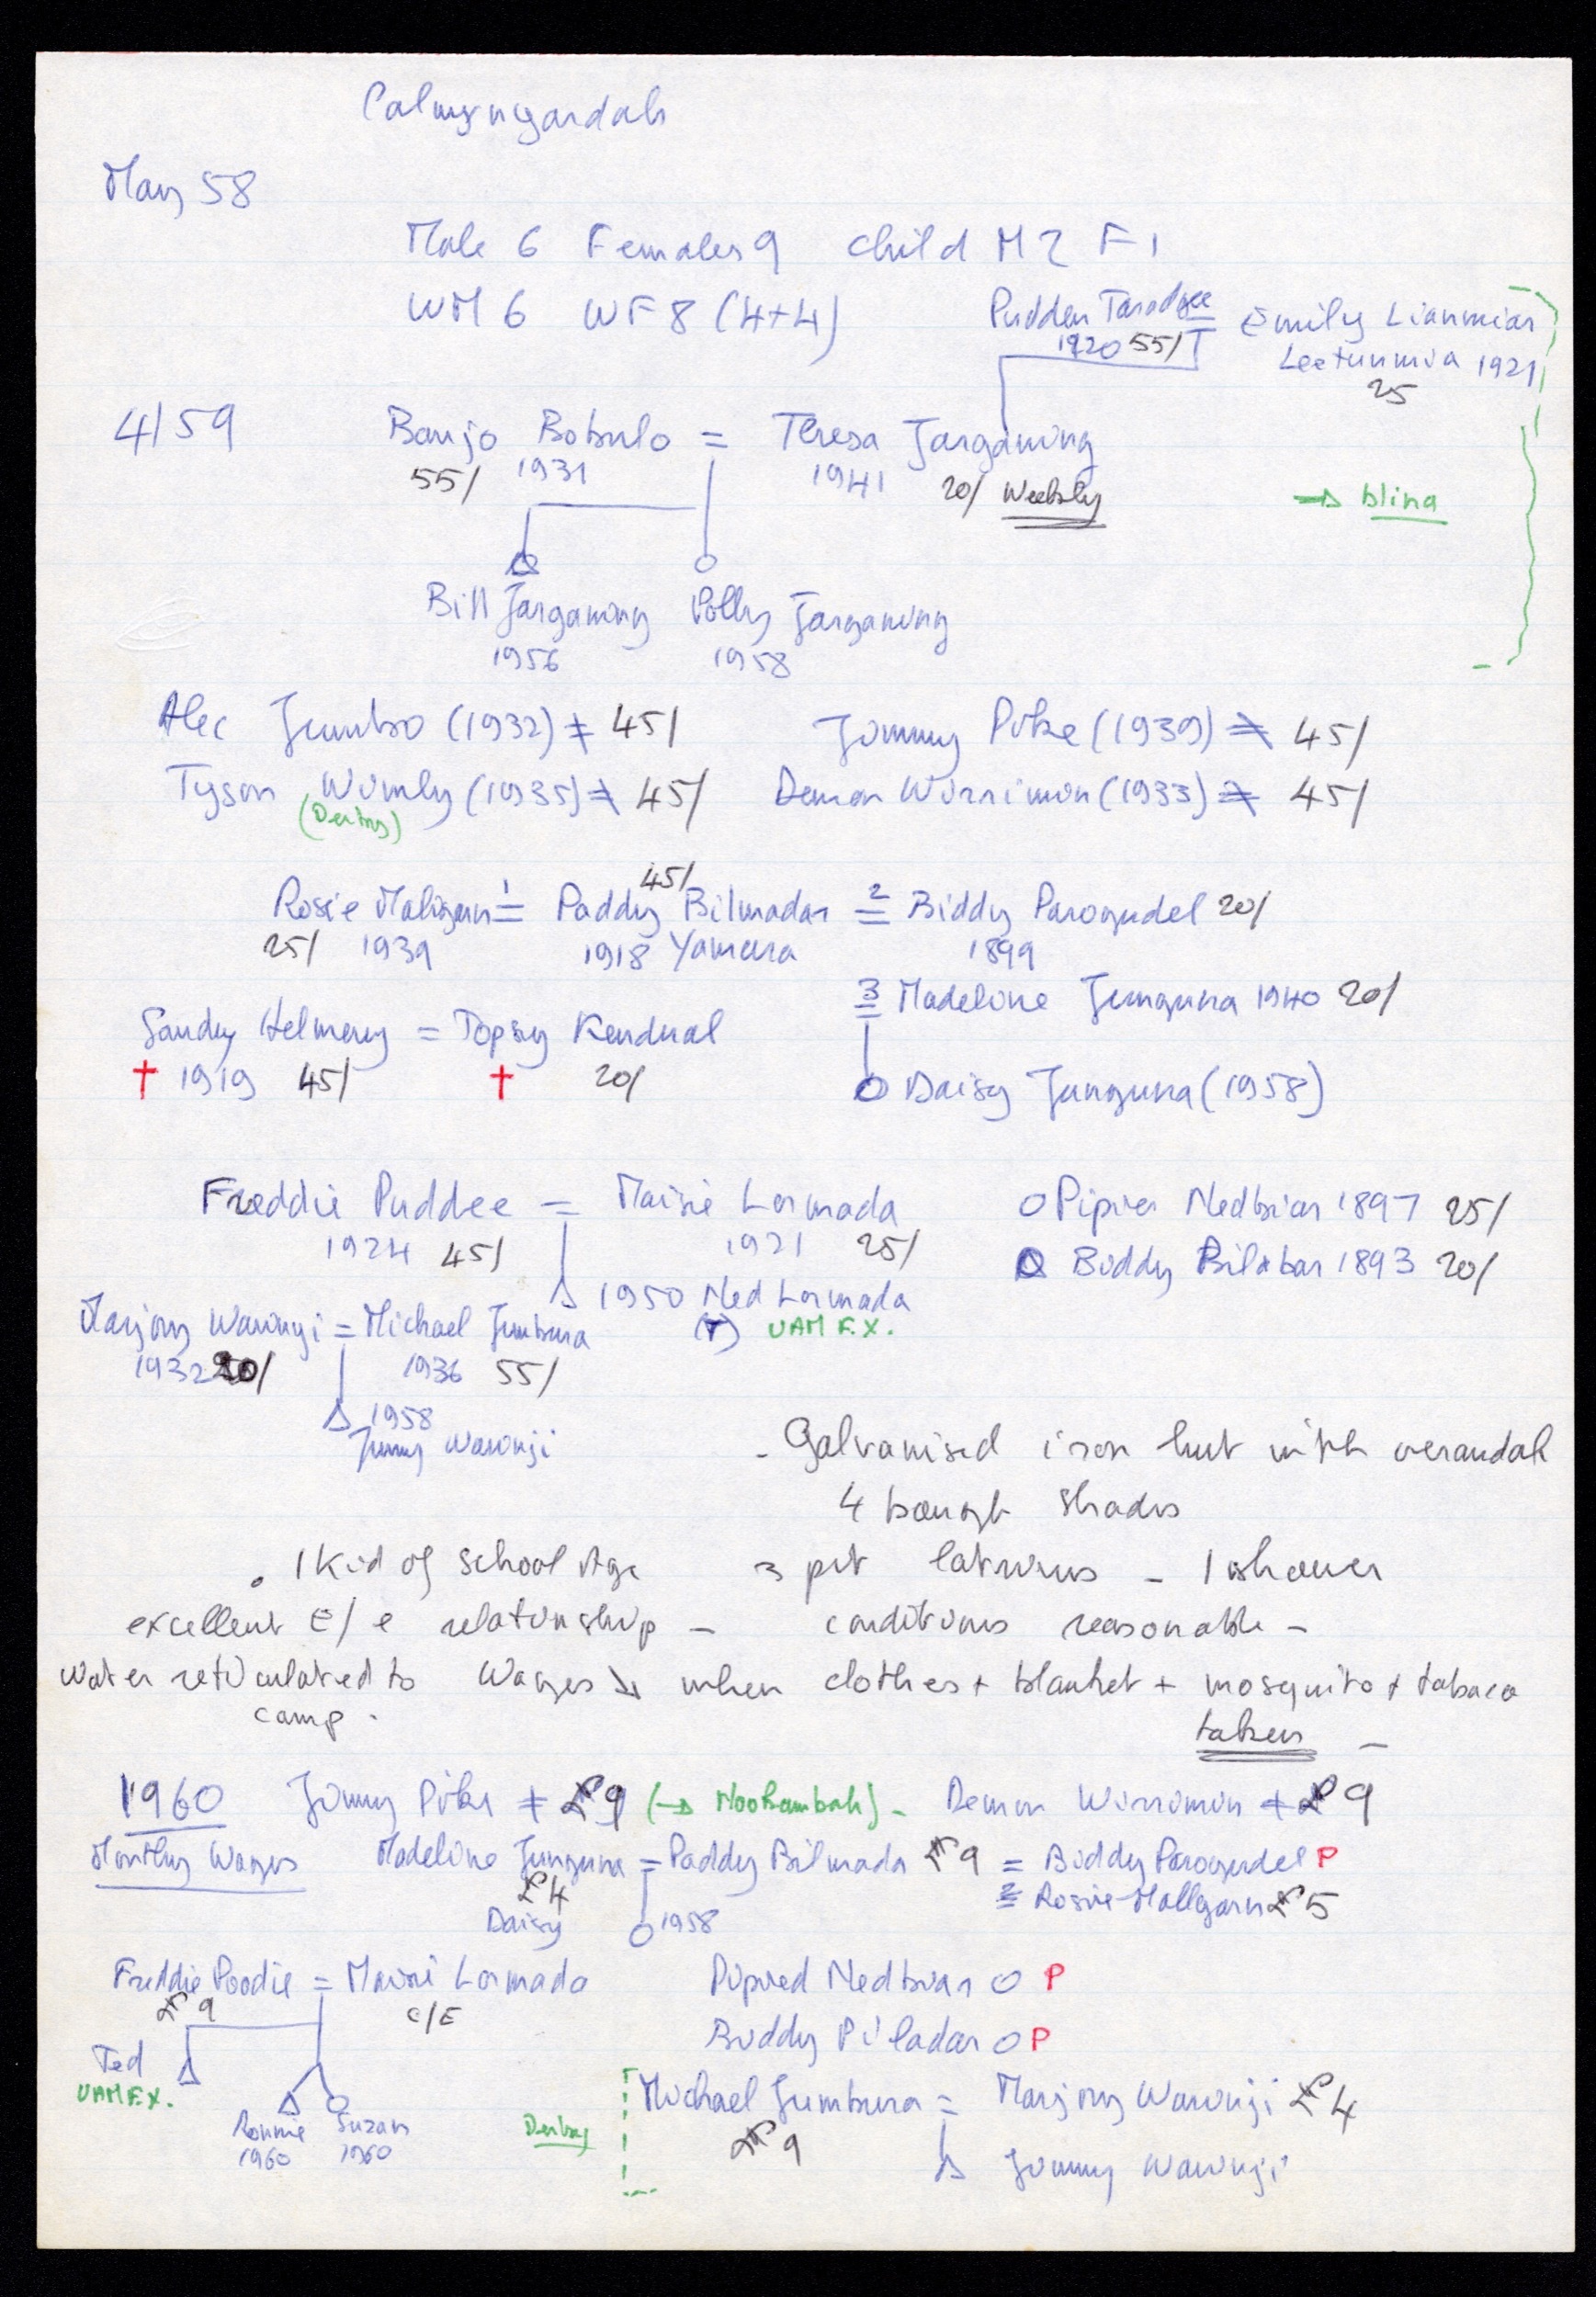 Calwynyardah
May 58
Male 6 Females 9 child M 2 F 1
WM 6 WF 8 (4+4)
Pudden = Emily Lianmiar
1920 55/ Leetunmia 1921
25
4/59 Banjo Bobulo = Teresa Jargawing
55/ 1931 1941 20/ Weekly
→ blina
Bill Jargawing Polly Jargawing
1956 1958
Alec Jumbo (1932) ≠ 45/ Jimmy Pike (1939) ≠ 45/
Tyson Wimly (1935) ≠ 45/ Demon Wirrimin (1933) ≠ 45/
(Derby)
45/
Rosie Maligarn =1 Paddy Bilmadar =2 Biddy Parogudel 20/
25/ 1939 1918 Yameera 1899
=3 Madeline Junguna 1940 20/
Sandy Helmery = Topsy Kendual
† 1919 45/ † 20/
Daisy Junguna (1958)
Freddie Puddee = Maisie Lormada O Pipier Nedbiar 1897 25/
1924 45/ 1921 25/ Biddy Bilabar 1893 20/
1950 Ned Lormada
Marjory Warinyi = Michael Jumbura (T) UAM F.X.
1932 20/ 1936 55/
1958
Jimmy Warinji
- Galvanised iron hut with verandah
4 bough shades
. 1 Kid of School Age 3 pit latrines - 1 shower
excellent E/e relationship - conditions reasonable -
water reticulated to Wages ↘ when clothes + blanket + mosquito + tobacco
camp. taken -
1960 Jimmy Pike ≠ £9 (→ Nookambah) - Demon Wirrimin ≠ £9
Monthly Wages Madeline Junguna = Paddy Bilmada £9 = Biddy Parogudel P
£4 =2 Rosie Mallgarn £5
Daisy 1958
Freddie Poodie = Maisie Lormada Pipied Nedbiar O P
£9 C/E
Biddy Piladar O P
Ted
UAM F.X.
Ronnie Suzan
1960 1960
Derby Michael Jumbura = Marjory Warinji £4
£9
Jimmy Warinji